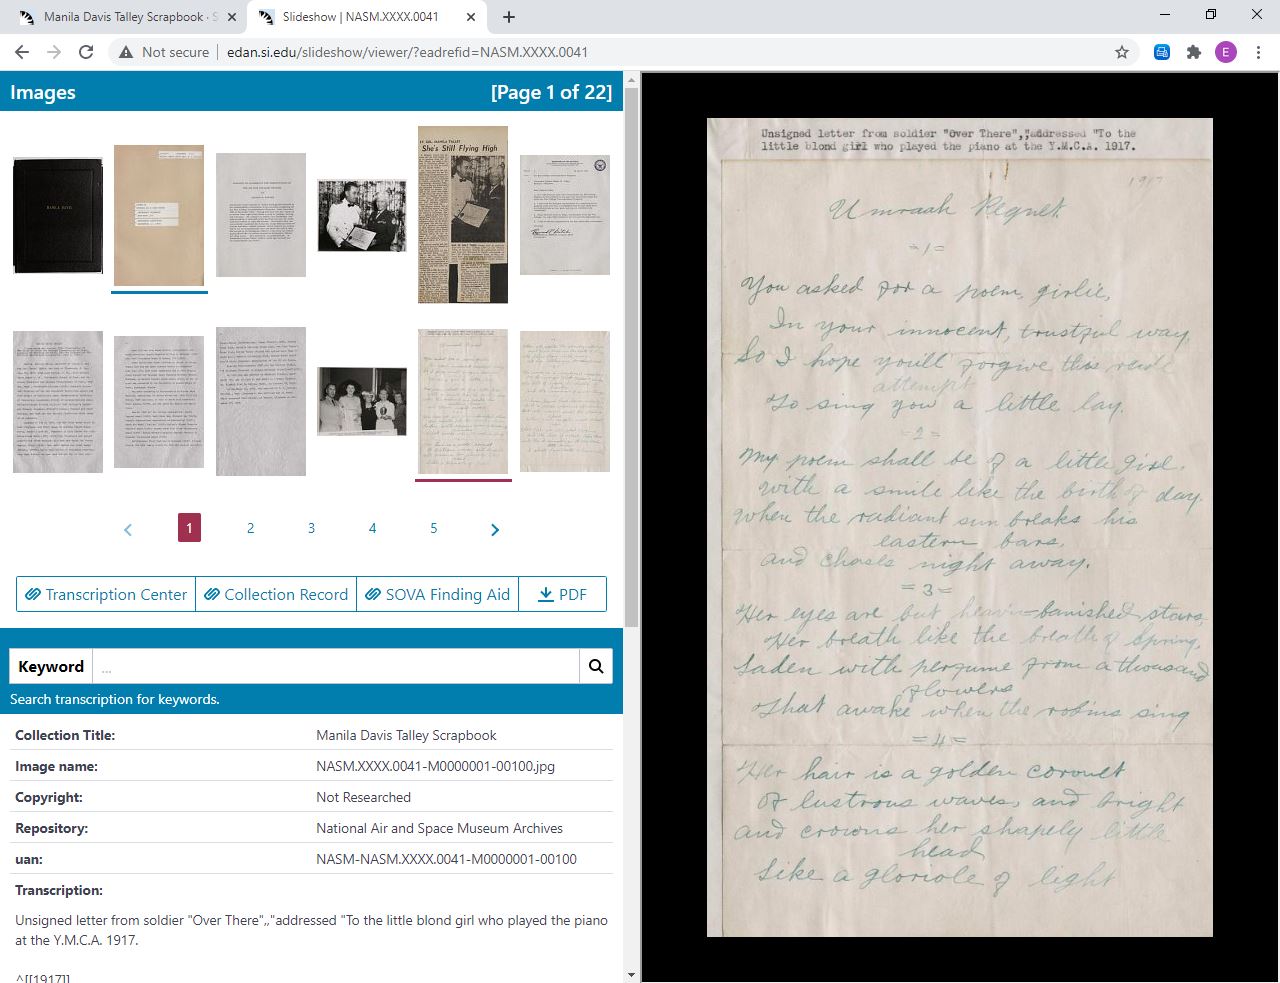 Manila Davis Talley Scrapbook · S
Slideshow | NASM.XXXX.0041
Not secure
edan.si.edu/slideshow/viewer/?eadrefid=NASM.XXXX.0041
E
Images
[Page 1 of 22]
MANILA DAVIS
EX GOL MANILA TALLEY
She's Still Flying High
1
2
3
4
5
Transcription Center
Collection Record
SOVA Finding Aid
PDF
Keyword
...
Search transcription for keywords.
Collection Title: Manila Davis Talley Scrapbook
Image name: NASM.XXXX.0041-M0000001-00100.jpg
Copyright: Not Researched
Repository: National Air and Space Museum Archives
uan: NASM-NASM.XXXX.0041-M0000001-00100
Transcription:
Unsigned letter from soldier "Over There",,"addressed "To the little blond girl who played the piano
at the Y.M.C.A. 1917.
^[[1917]]
Unsigned letter from soldier "Over There",,"addressed "To the
little blond girl who played the piano at the Y.M.C.A. 1917.
1917
= 1 =
You asked for a poem, girlie,
In your innocent, trustful way,
So I hope you'll forgive this rude
attempt
To sing you a little lay.
= 2 =
My poem shall be of a little girl,
With a smile like the birth of day,
When the radiant sun breaks his
eastern bars,
and chases night away.
= 3 =
Her eyes are but heav'n-banished stars,
Her breath like the breath of Spring,
Laden with perfume from a thousand
flowers
That awake when the robins sing
= 4 =
Her hair is a golden coronet
Of lustrous waves, and bright
and crowns her shapely little
head
Like a gloriole of light